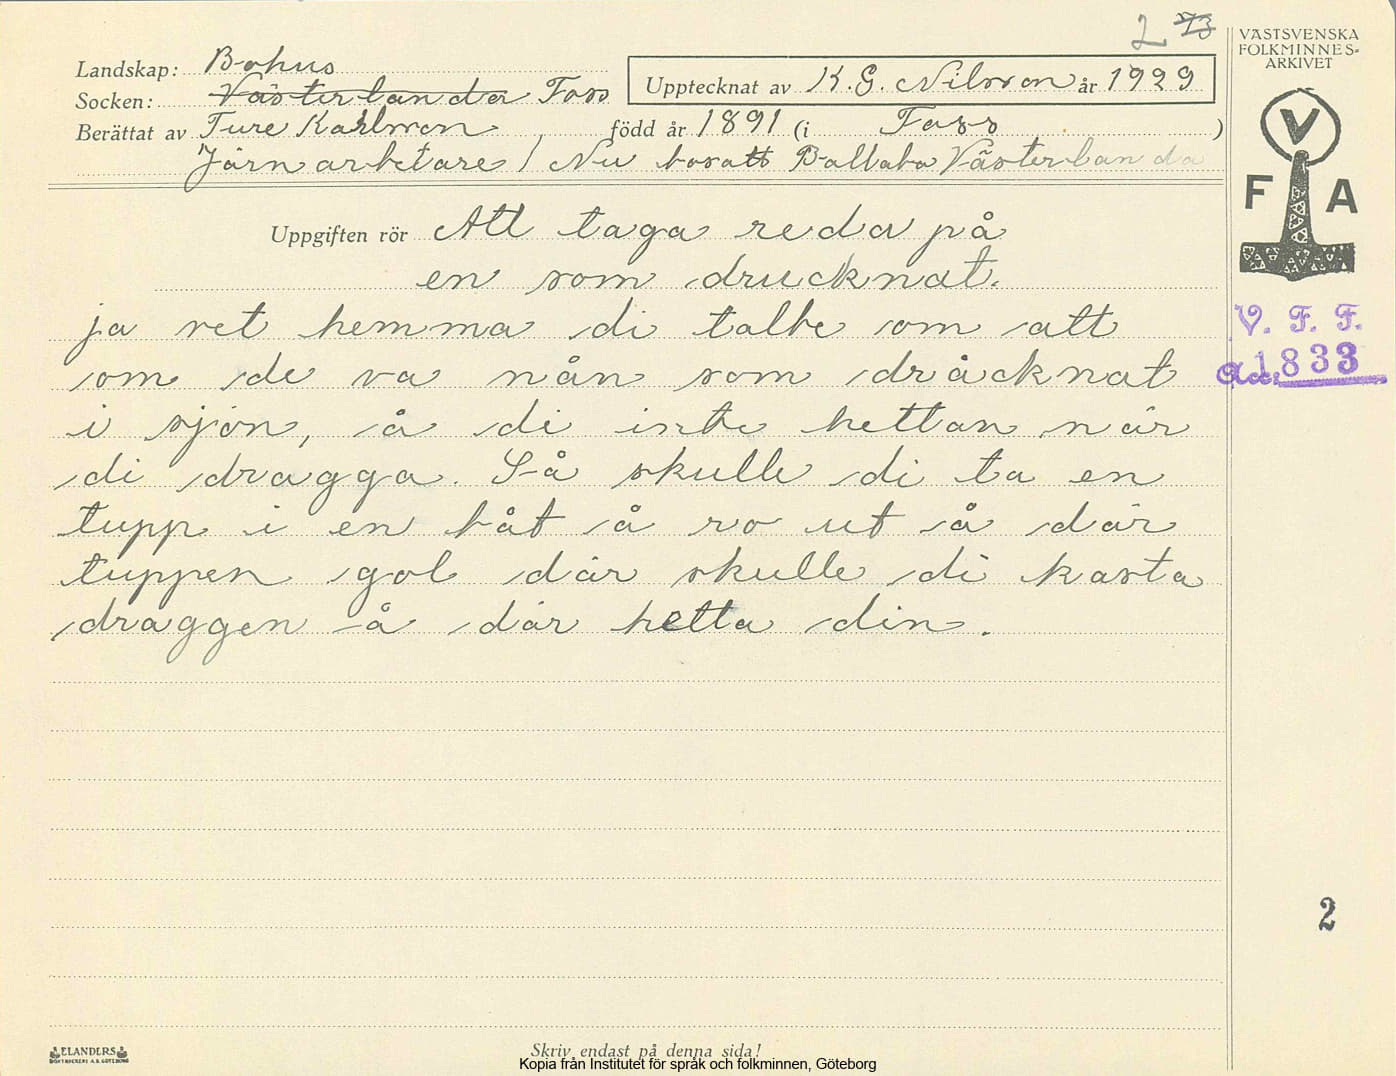 2 73
VÄSTSVENSKA
FOLKMINNES-
ARKIVET
Landskap: Bohus
Socken: Västerlanda Foss
Upptecknat av K.G. Nilsson år 1929
Berättat av Ture Karlsson född år 1891 (i Foss )
Järnarbetare / Nu bosatt Ballabo Västerlanda
V
F A
Uppgiften rör Att taga reda på
en som drucknat.
V. F. F.
ad. 833
ja vet hemma di talte om att
om de va nån som dråcknat
i sjön, å di inte hettan när
di dragga. Så skulle di ta en
tupp i en båt å ro ut å där
tuppen gol där skulle di kasta
draggen å där hetta din.
2
ELANDERS
BOKTRYCKERI A.B. GÖTEBORG
Skriv endast på denna sida!
Kopia från Institutet för språk och folkminnen, Göteborg